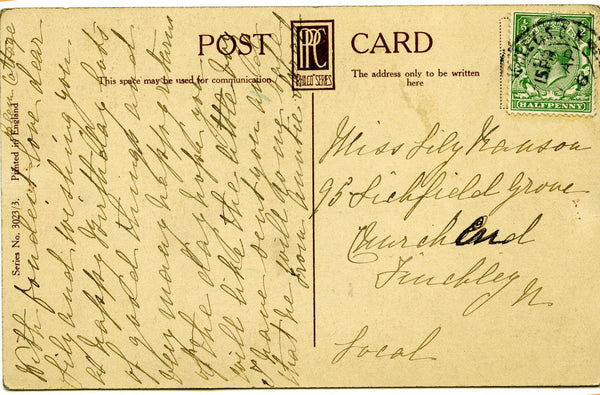 POST CARD
PPC
PHILCO SERIES
This space may be used for communication.
The address only to be written
here
HALFPENNY
Miss Lily Ranson
95 Lichfield Grove
Church End
Finchley
N
Local
Series No. 3023/3. Printed in England
With fondest love dear
Lily and wishing you
a happy birthday lots
of good things and
very many happy returns
of the day hope you
will like the little
I have sent you
that he will
from Auntie